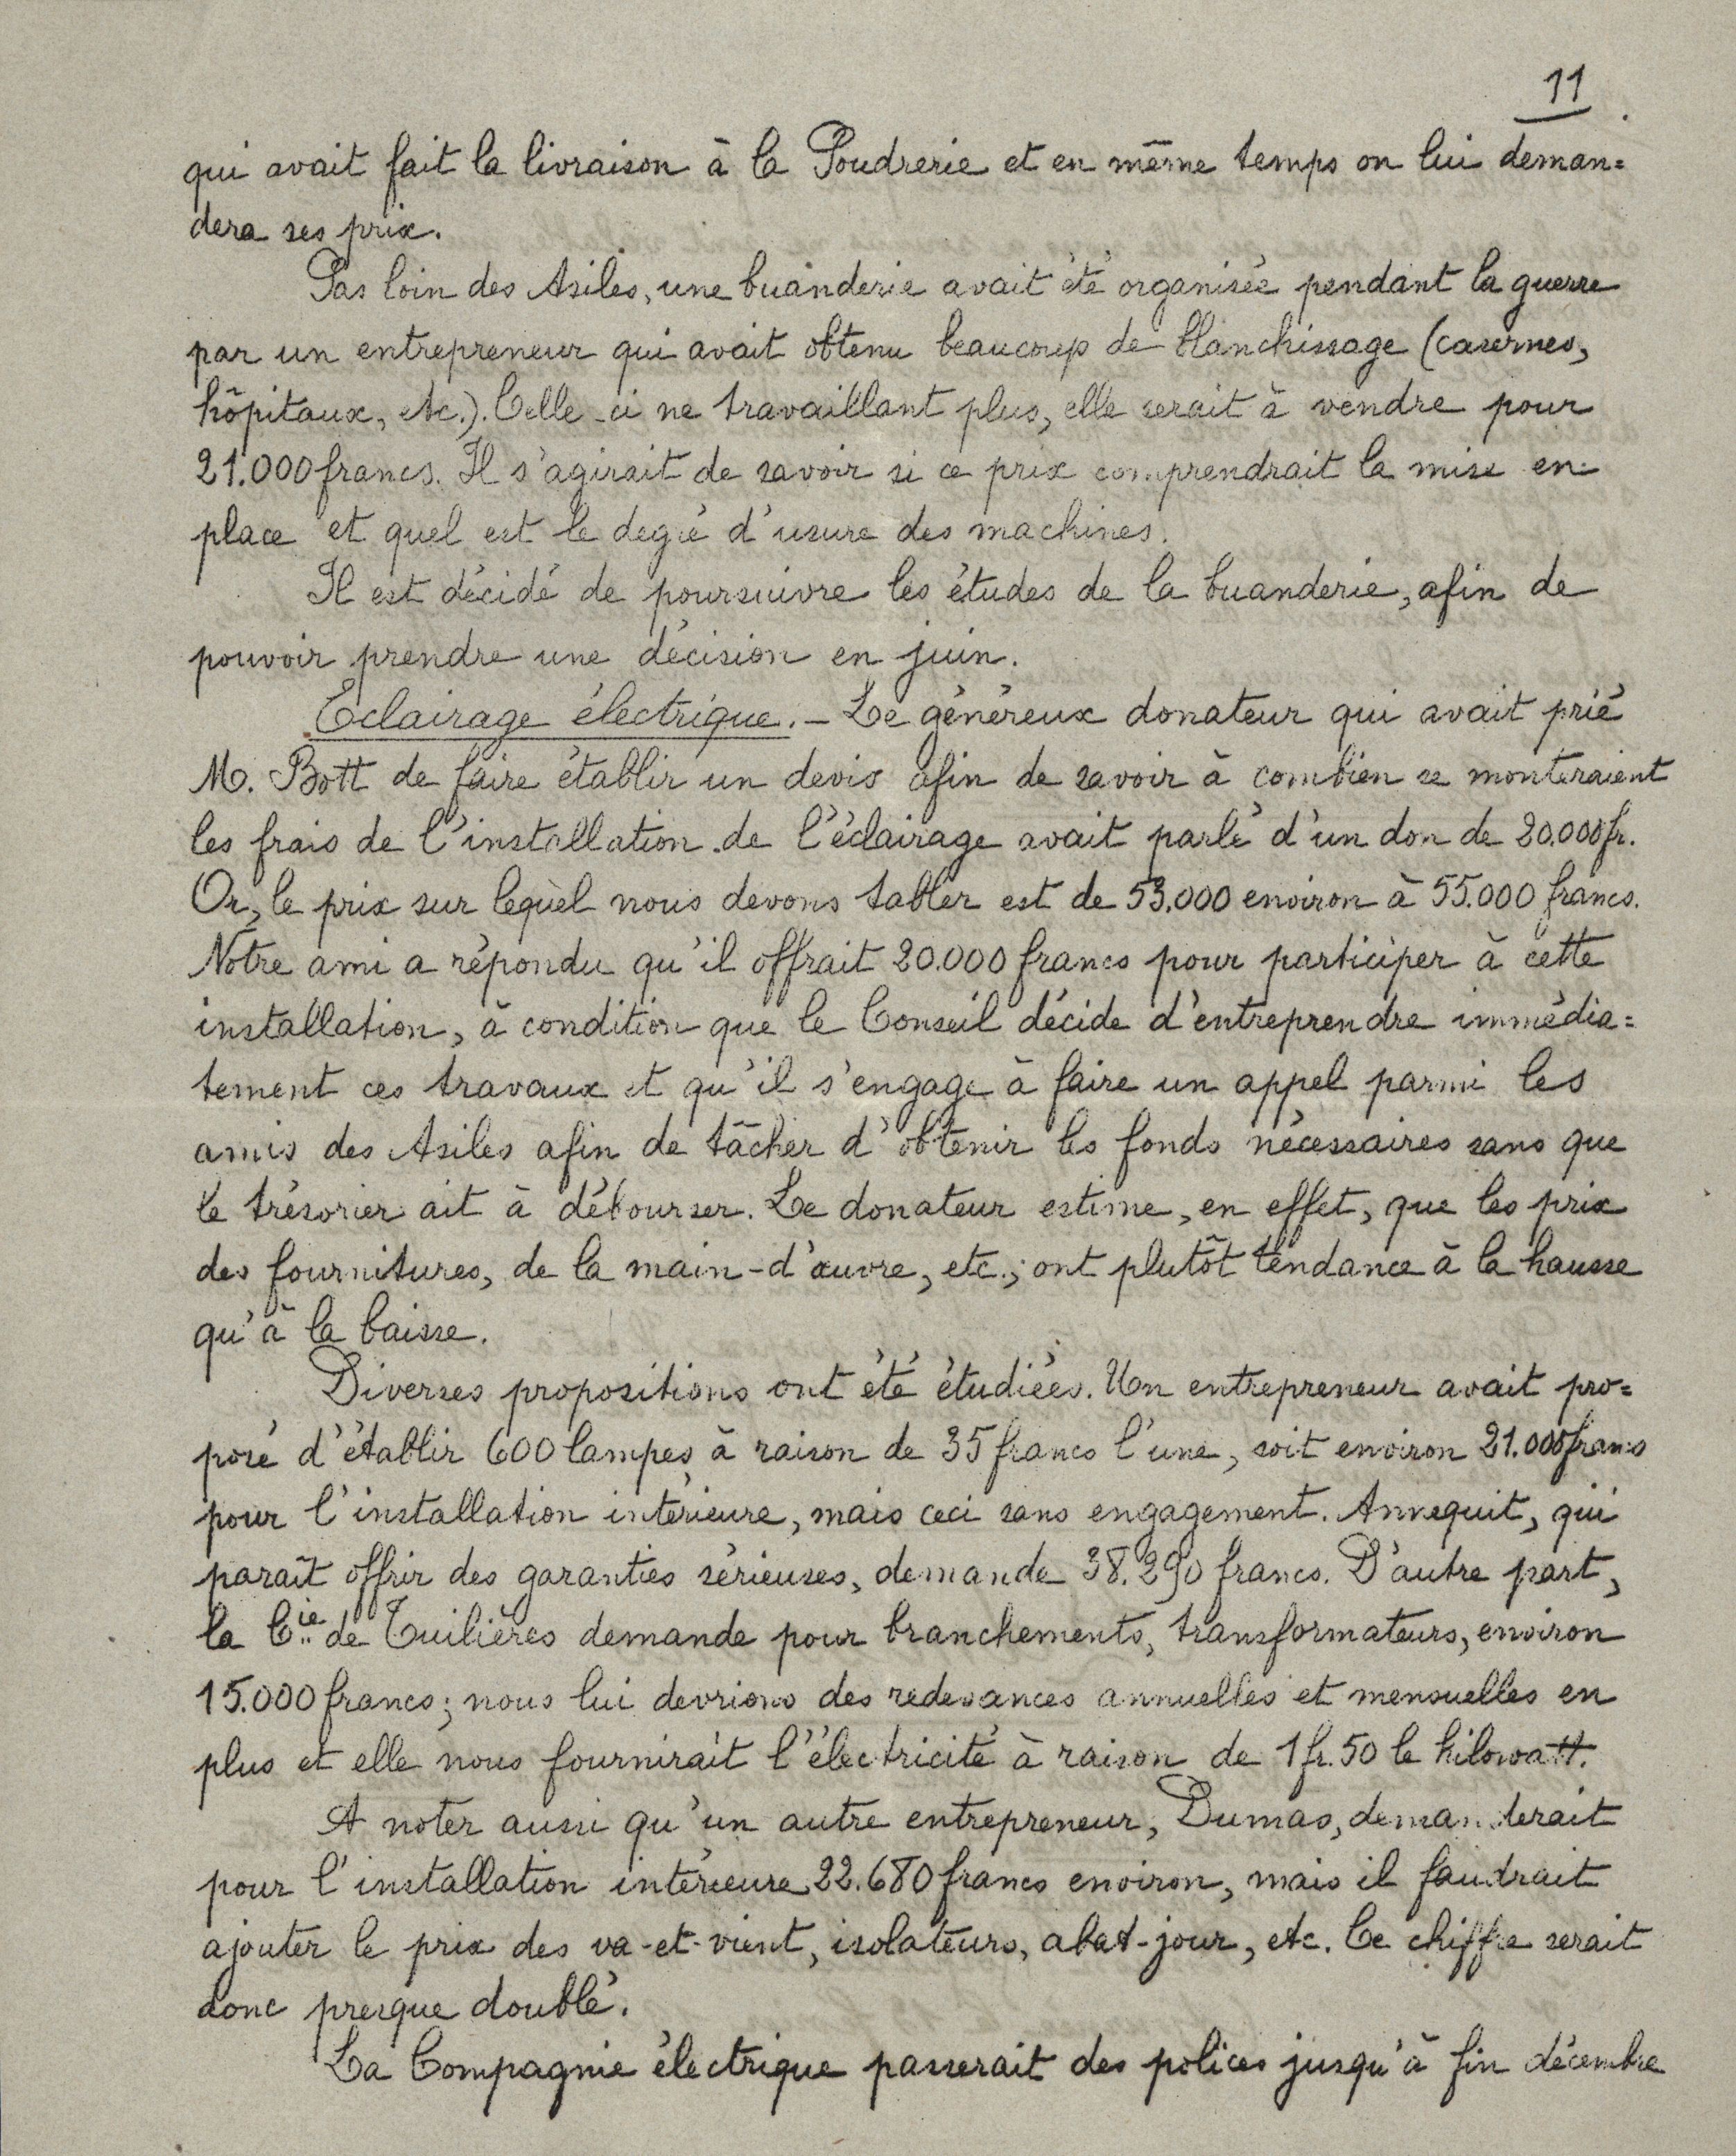 11
qui avait fait la livraison à la Poudrerie et en même temps on lui deman=
dera ses prix.
Pas loin des Asiles, une buanderie avait été organisée pendant la guerre
par un entrepreneur qui avait obtenu beaucoup de blanchissage (casernes,
hôpitaux, etc.). Celle-ci ne travaillant plus, elle serait à vendre pour
21.000 francs. Il s'agirait de savoir si ce prix comprendrait la mise en
place et quel est le degré d'usure des machines.
Il est décidé de poursuivre les études de la buanderie, afin de
pouvoir prendre une décision en juin.
Eclairage électrique. - Le généreux donateur qui avait prié
M. Bott de faire établir un devis afin de savoir à combien se monteraient
les frais de l'installation de l'éclairage avait parlé d'un don de 20.000 fr.
Or, le prix sur lequel nous devons tabler est de 53.000 environ à 55.000 francs.
Notre ami a répondu qu'il offrait 20.000 francs pour participer à cette
installation, à condition que le Conseil décide d'entreprendre immédia=
tement ces travaux et qu'il s'engage à faire un appel parmi les
amis des Asiles afin de tâcher d'obtenir les fonds nécessaires sans que
le trésorier ait à débourser. Le donateur estime, en effet, que les prix
des fournitures, de la main-d'œuvre, etc., ont plutôt tendance à la hausse
qu'à la baisse.
Diverses propositions ont été étudiées. Un entrepreneur avait pro=
posé d'établir 600 lampes à raison de 35 francs l'une, soit environ 21.000 francs
pour l'installation intérieure, mais ceci sans engagement. Annequit, qui
paraît offrir des garanties sérieuses, demande 38.290 francs. D'autre part,
la Cie de Tuilières demande pour branchements, transformateurs, environ
15.000 francs; nous lui devrions des redevances annuelles et mensuelles en
plus et elle nous fournirait l'électricité à raison de 1 fr. 50 le kilowatt.
A noter aussi qu'un autre entrepreneur, Dumas, demanderait
pour l'installation intérieure 22.680 francs environ, mais il faudrait
ajouter le prix des va-et-vient, isolateurs, abat-jour, etc. Ce chiffre serait
donc presque doublé.
La Compagnie électrique passerait des polices jusqu'à fin décembre